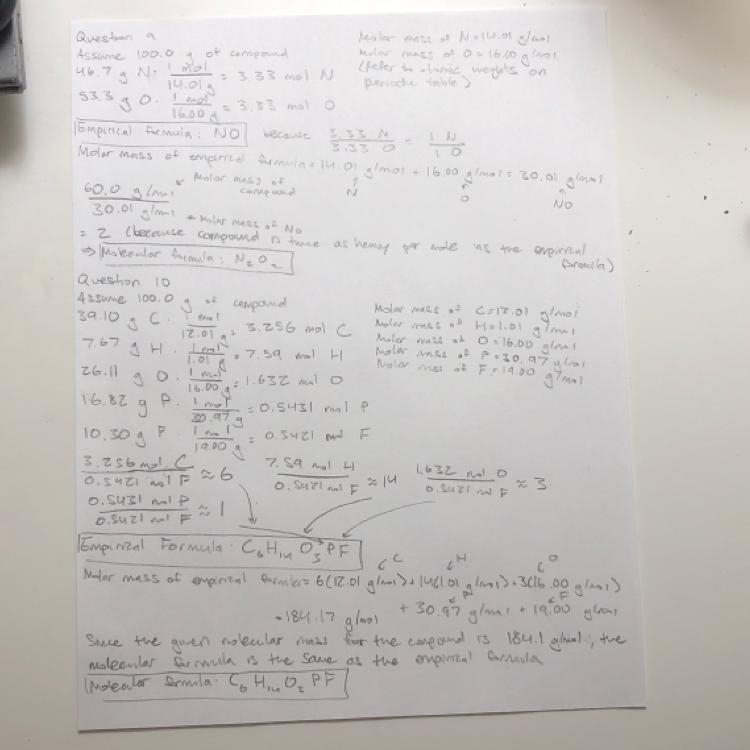 Question 9
Assume 100.0 g of compound
Molar mass of N = 14.01 g/mol
Molar mass of O = 16.00 g/mol
(Refer to atomic weights on
periodic table)
46.7 g N · 1 mol / 14.01 g = 3.33 mol N
53.3 g O · 1 mol / 16.00 g = 3.33 mol O
Empirical formula: NO because 3.33 N / 3.33 O = 1 N / 1 O
Molar mass of empirical formula = 14.01 g/mol + 16.00 g/mol = 30.01 g/mol
N O NO
60.0 g/mol ← Molar mass of compound
30.01 g/mol ← Molar mass of NO
= 2 (because compound is twice as heavy per mole as the empirical
formula)
⇒ Molecular formula: N2O2
Question 10
Assume 100.0 g of compound
Molar mass of C = 12.01 g/mol
Molar mass of H = 1.01 g/mol
Molar mass of O = 16.00 g/mol
Molar mass of P = 30.97 g/mol
Molar mass of F = 19.00 g/mol
39.10 g C · 1 mol / 12.01 g = 3.256 mol C
7.67 g H · 1 mol / 1.01 g = 7.59 mol H
26.11 g O · 1 mol / 16.00 g = 1.632 mol O
16.82 g P · 1 mol / 30.97 g = 0.5431 mol P
10.30 g F · 1 mol / 19.00 g = 0.5421 mol F
3.256 mol C / 0.5421 mol F ≈ 6
7.59 mol H / 0.5421 mol F ≈ 14
1.632 mol O / 0.5421 mol F ≈ 3
0.5431 mol P / 0.5421 mol F ≈ 1
Empirical Formula: C6H14O3PF
C H O
Molar mass of empirical formula = 6(12.01 g/mol) + 14(1.01 g/mol) + 3(16.00 g/mol)
P F
+ 30.97 g/mol + 19.00 g/mol
= 184.17 g/mol
Since the given molecular mass for the compound is 184.1 g/mol, the
molecular formula is the same as the empirical formula
Molecular formula: C6H14O3PF